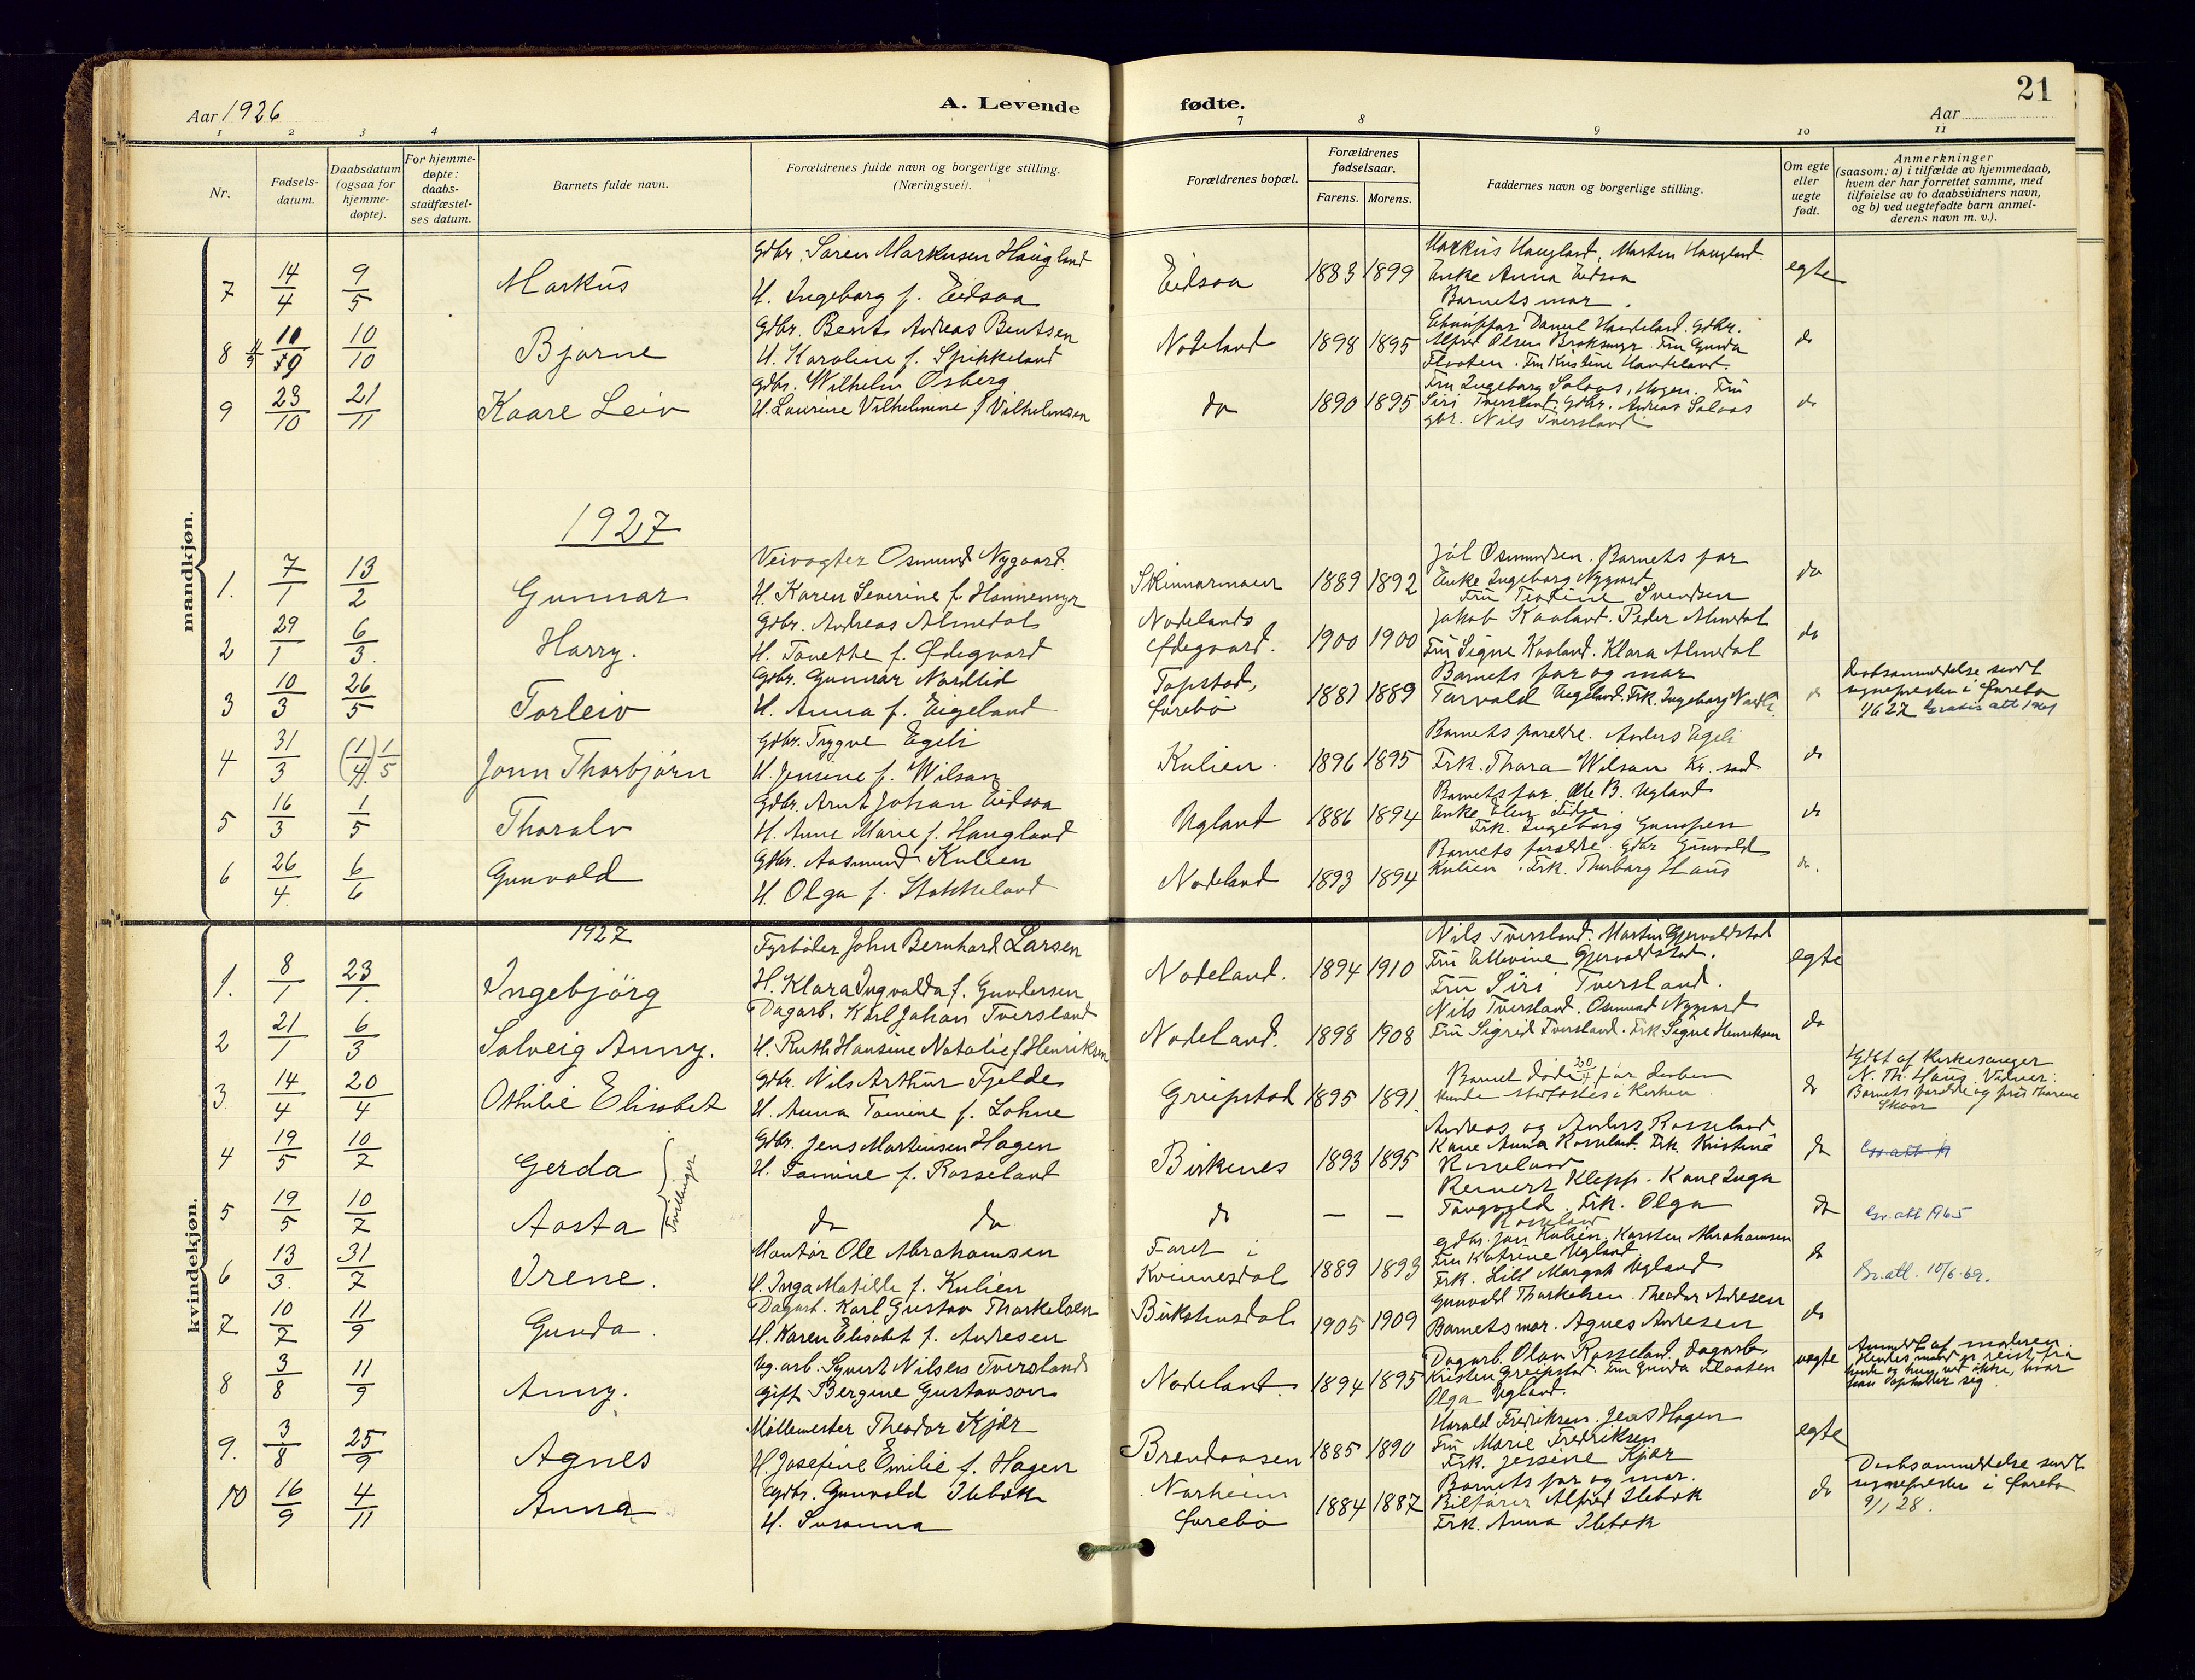 21
Aar 1926
A. Levende fødte.
Aar
1 2 3 4 7 8 9 10 11
Nr.
Fødsels-
datum.
Daabsdatum
(ogsaa for
hjemme-
døpte).
For hjemme-
døpte:
daabs-
stadfæstel-
ses datum.
Barnets fulde navn.
Forældrenes fulde navn og borgerlige stilling.
(Næringsvei).
Forældrenes bopæl.
Forældrenes
fødselsaar.
Farens. Morens.
Faddernes navn og borgerlige stilling.
Om egte
eller
uegte
født.
Anmerkninger
(saasom: a) i tilfælde av hjemmedaab,
hvem der har forrettet samme, med
tilføielse av to daabsvidners navn,
og b) ved uegtefødte barn anmel-
derens navn m. v.).
mandkjøn.
7 14/4 9/5 Markus
Gdbr. Søren Markusen Haugland
H. Ingeborg f. Eidsaa
Eidsaa 1883 1899
Markus Haugland, Martin Haugland
Enke Anna Eidsaa
Barnets mor.
egte
8 10/10 Bjarne
Gdbr. Bent Andreas Bentsen
H. Karoline f. Spikkeland
Nodeland 1898 1895
Daniel Handeland. Gdbr.
Alfred Olsen Broksmyr. Fru Gunda
Flaaten. Fru Kristine Handeland.
do
9 23/10 21/11 Kaare Leiv
Gdbr. Wilhelm Osberg
H. Laurine Vilhelmine f. Vilhelmsen
do 1890 1895
Fru Ingeborg Solaas, Fru
Siri Tversland. Gdbr. Andreas Solaas
gbr. Nils Tversland
do
1927
1. 7/1 13/2 Gunnar
Veivogter Osmund Nygaard.
H. Karen Severine f. Honnemyr
Skinnarmoen 1889 1892
Jol Osmundsen. Barnets far
Enke Ingeborg Nygaard
Fru Teodine Svendsen
do
2 29/1 6/3. Harry.
Gdbr. Andreas Almedal
H. Tonette f. Ødegaard
Nodelands
Ødegaard. 1900 1900
Jakob Kaaland. Peder Almedal
Fru Signe Kaaland. Klara Almedal
do
3 10/3 26/5 Torleiv
Gdbr. Gunnar Nordlid
H. Anna f. Eigeland
Topstad,
Øvrebø 1881 1889
Barnets far og mor
Torvald Eigeland. Frk. Ingeborg Nordli.
do
Daabsanmeldelse sendt
sognepresten i Øvrebø
1/6 27 Gratis att 1961
4 31/3 (1/4) 1/5 Jonn Thorbjørn
Gdbr. Trygve Egeli
H. Jensine f. Wilson
Kulien. 1896 1895
Barnets forældre. Anders Egeli
Frk. Thora Wilson Kr. sand
do
5 16/3 1/5 Thoralv
Gdbr. Arnt Johan Eidsaa
H. Anne Marie f. Haugland
Ugland 1886 1894
Barnets far. Ole B. Ugland
Enke Elen
Frk. Ingeborg Gumpen
do
6 26/4. 6/6 Gunvald
Gdbr. Aasmund Kulien
H. Olga f. Stokkeland
Nodeland 1893 1894
Barnets forældre. Gdbr Gunvald
Kulien. Frk. Thorborg Haus
do.
kvindekjøn.
1927
1. 8/1 23/1. Ingebjörg
Fyrbøter John Bernhard Larsen
H. Klara Ingvalda f. Gundersen
Nodeland. 1894 1910
Nils Tversland. Martin Gjervoldstad
Fru Ellevine Gjervoldstad.
Fru Siri Tversland.
egte
2 21/1 6/3 Solveig Anny.
Dagarb. Karl Johan Tversland
H. Ruth Hansine Natalie f. Henriksen
Nodeland. 1898 1908
Nils Tversland. Osmund Nygaard
Fru Sigrid Tversland. Frk Signe Henriksen
do
3. 14/4 20/4 Othilie Elisabet
Gdbr. Nils Arthur Fjelde
H. Anna Tomine f. Lohne
Greipstad 1895 1891
Barnet døde 20/4 før daaben
kunde stadfæstes i Kirken.
do
Hjdøbt af Kirkesanger
N. Th. Haus. Vidner:
Barnets forældre og fru Thorene
Skaar
4 19/5 10/7 Gerda
Tvillinger
Gdbr. Jens Martinsen Hagen
H. Tomine f. Rosseland
Birkenes 1893 1895
Andreas og Anders Rosseland
Kone Anna Rosseland. Frk. Kristine
Rosseland
do
5 19/5 10/7 Aasta
do do
do — —
Reinert Klepp. Kone Inga
Tangvald. Frk. Olga
Rosseland
do
Gr. att 1965
6 13/3. 31/7 Irene.
Montør Ole Abrahamsen
H. Inga Matilde f. Kulien
Foret i
Kvinnesdal 1889 1893
Gdbr. Jon Kulien. Karsten Abrahamsen
Fru Katrine Ugland.
Frk. Lill Margot Ugland
do
Gr. att. 10/6-69.
7 10/7 11/9 Gunda.
Dagarb. Karl Gustav Thorkelsen
H. Karen Elisabet f. Andresen
Bukstensdal 1905 1909
Gunvald Thorkelsen. Theodor Andresen
Barnets mor. Agnes Andresen
do
8 3/8 11/9 Anny.
Ug. arb. Syvert Nilsen Tversland
Gift Bergine Gustavson
Nodeland. 1894 1895
Dagarb. Olav Rosseland. Dagarb.
Kristen Greipstad. Fru Gunda Flaaten
Olga Ugland.
uegte
Anmeldt af moderen.
Hendes mand er reist fra
hende og hun ved ikke, hvor
han opholder sig
9. 3/8 25/9 Agnes
Møllemester Theodor Kjær
H. Josefine Emilie f. Hagen
Brandaasen 1885 1890
Harald Fredriksen. Jens Hagen
Fru Marie Fredriksen
Frk. Jessine Kjær
egte
10 16/9 4/11 Anna
Gdbr. Gunvald Ilebæk
H. Susanna
Norheim
Øvrebø 1884 1887
Barnets far og mor.
Bilfører Alfred Ilebæk
Frk. Anna Ilebæk
do
Daabsanmeldelse sendt
sognepresten i Øvrebø
9/1 28.